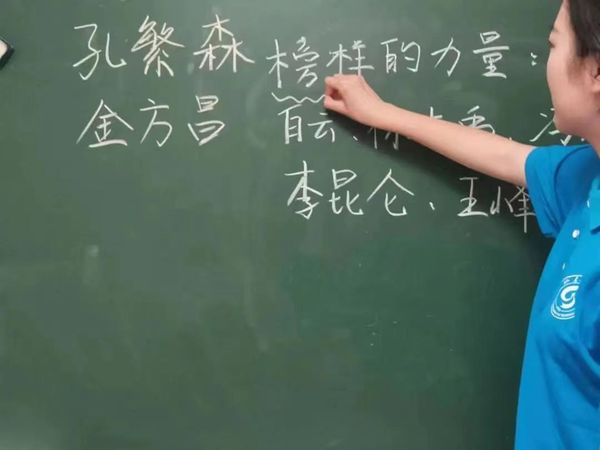 孔繁森 榜样的力量：
金方昌 白云、
李昆仑、王峰